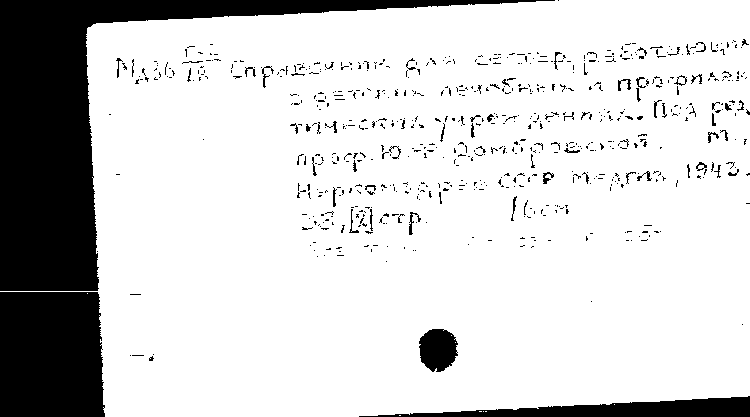 Справочник для сестер, работающих
в детских лечебных и профилак
тических учреждениях. Под ред.
проф. Ю.Ф. Домбровской. М.,
Наркомздрав СССР Медгиз, 1943.
38, [2] стр. 16 см